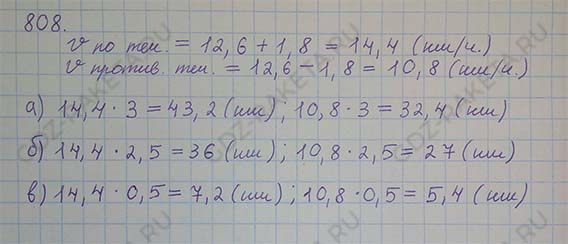 808.
V по теч. = 12,6 + 1,8 = 14,4 (км/ч.)
V против. теч. = 12,6 - 1,8 = 10,8 (км/ч.)
а) 14,4 · 3 = 43,2 (км); 10,8 · 3 = 32,4 (км)
б) 14,4 · 2,5 = 36 (км); 10,8 · 2,5 = 27 (км)
в) 14,4 · 0,5 = 7,2 (км); 10,8 · 0,5 = 5,4 (км)
GDZ-RAKETA.RU